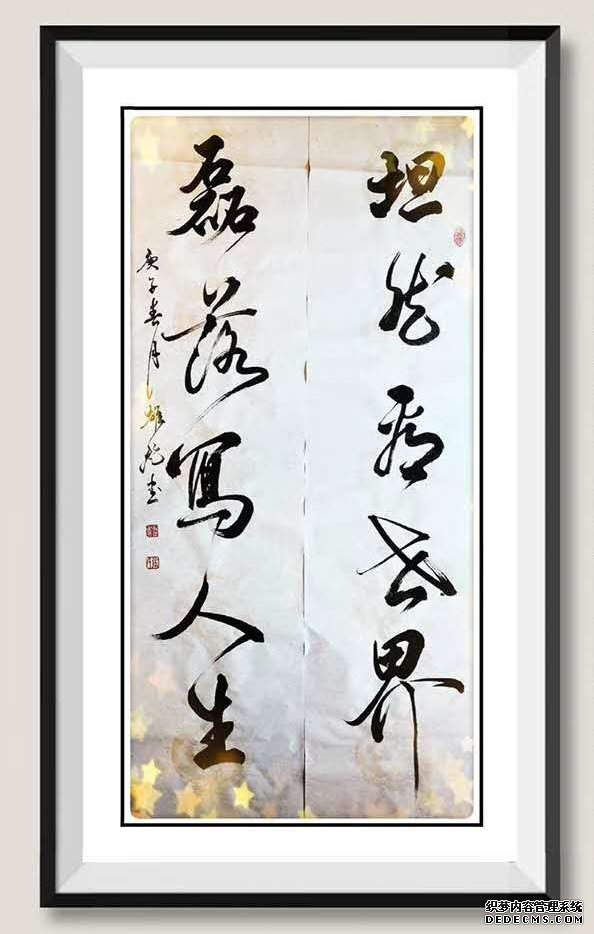 坦然看世界
磊落寫人生
庚子春月雄龍書
织梦内容管理系统
DEDECMS.COM